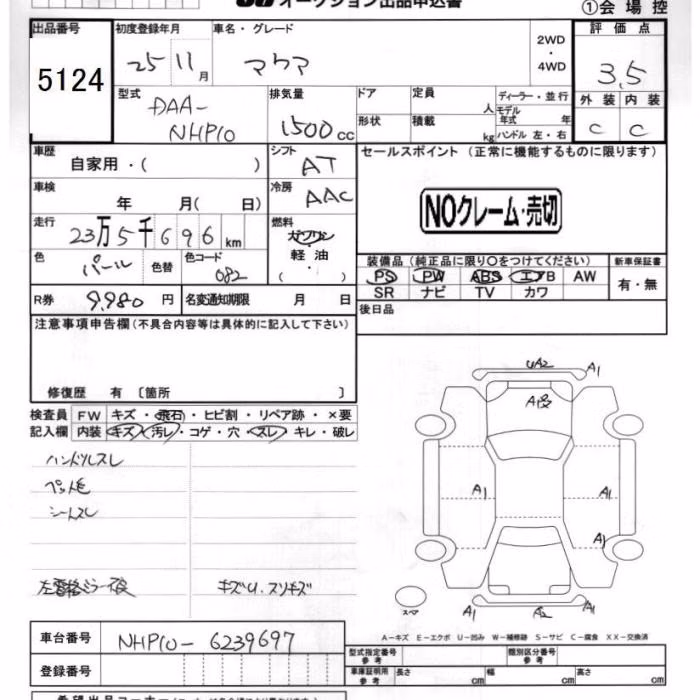 オークション出品申込書
①会場控
出品番号 初度登録年月 車名・グレード 2WD・4WD 評価点
5124 25 11月 アクア 3.5
型式 排気量 ドア 定員 人 ディーラー・並行 外装 内装
DAA-NHP10 1500cc 形状 積載 kg モデル年式 年 ハンドル 左・右 C C
車歴 自家用・( ) シフト AT セールスポイント (正常に機能するものに限ります)
車検 年 月( 日) 冷房 AAC
NOクレーム・売切
走行 23万5千696km 燃料 ガソリン・軽油 ( )
色 パール 色替 色コード 082
装備品 (純正品に限り○をつけてください) 新車保証書
PS PW ABS エアB AW 有・無
SR ナビ TV カワ
R券 9,980円 名変通知期限 月 日
後日品
注意事項申告欄(不具合内容等は具体的に記入して下さい)
修復歴 有 〔箇所 〕
検査員記入欄 FW キズ・飛石・ヒビ割・リペア跡・×要
内装 キズ・汚レ・コゲ・穴・スレ・キレ・破レ
ハンドルスレ
ペット毛
シートスレ
左 ミラー
キズU.スリキズ
UA2 A1
A1
A1 A1
A1
A1 A2 A1
スペア
A-キズ E-エクボ U-凹み W-補修跡 S-サビ C-腐食 XX-交換済
車台番号 NHP10-6239697
登録番号
型式指定番号 参考 類別区分番号 参考
車庫証明用 参考 長さ cm 幅 cm 高さ cm